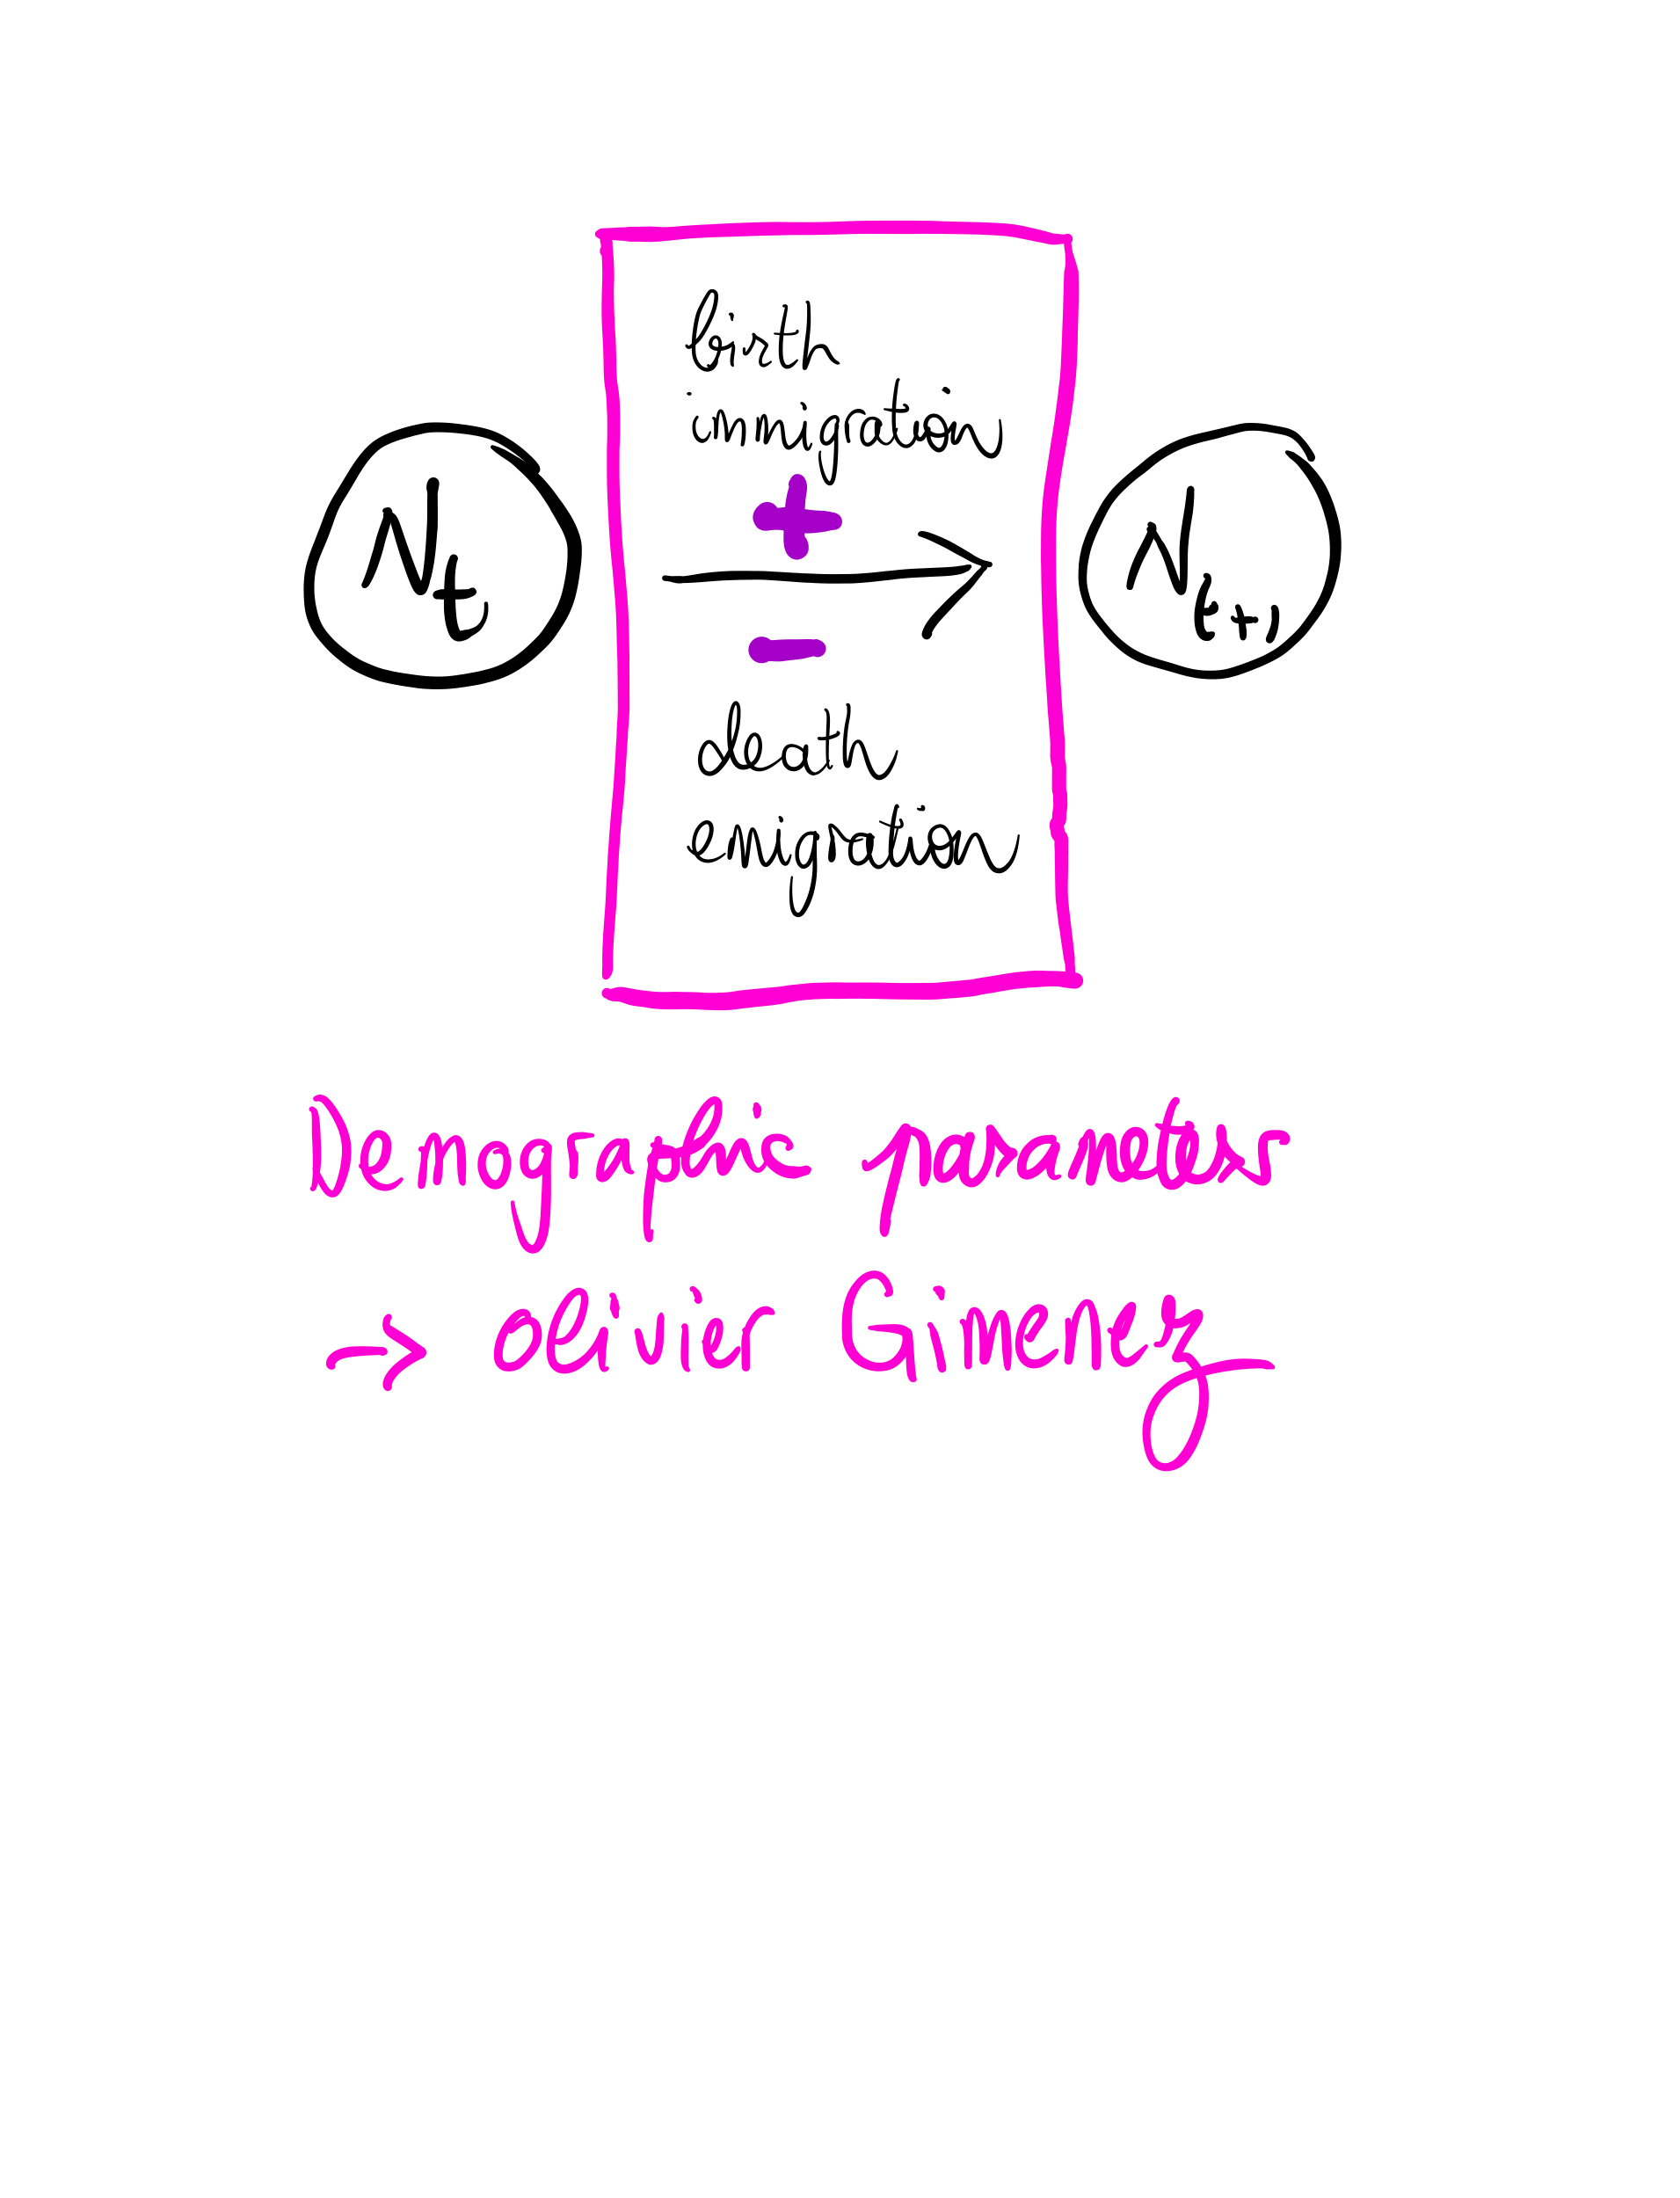 birth
immigration
+
N_t → N_{t+1}
-
death
emigration
Demographic parameters
→ Olivier Gimenez